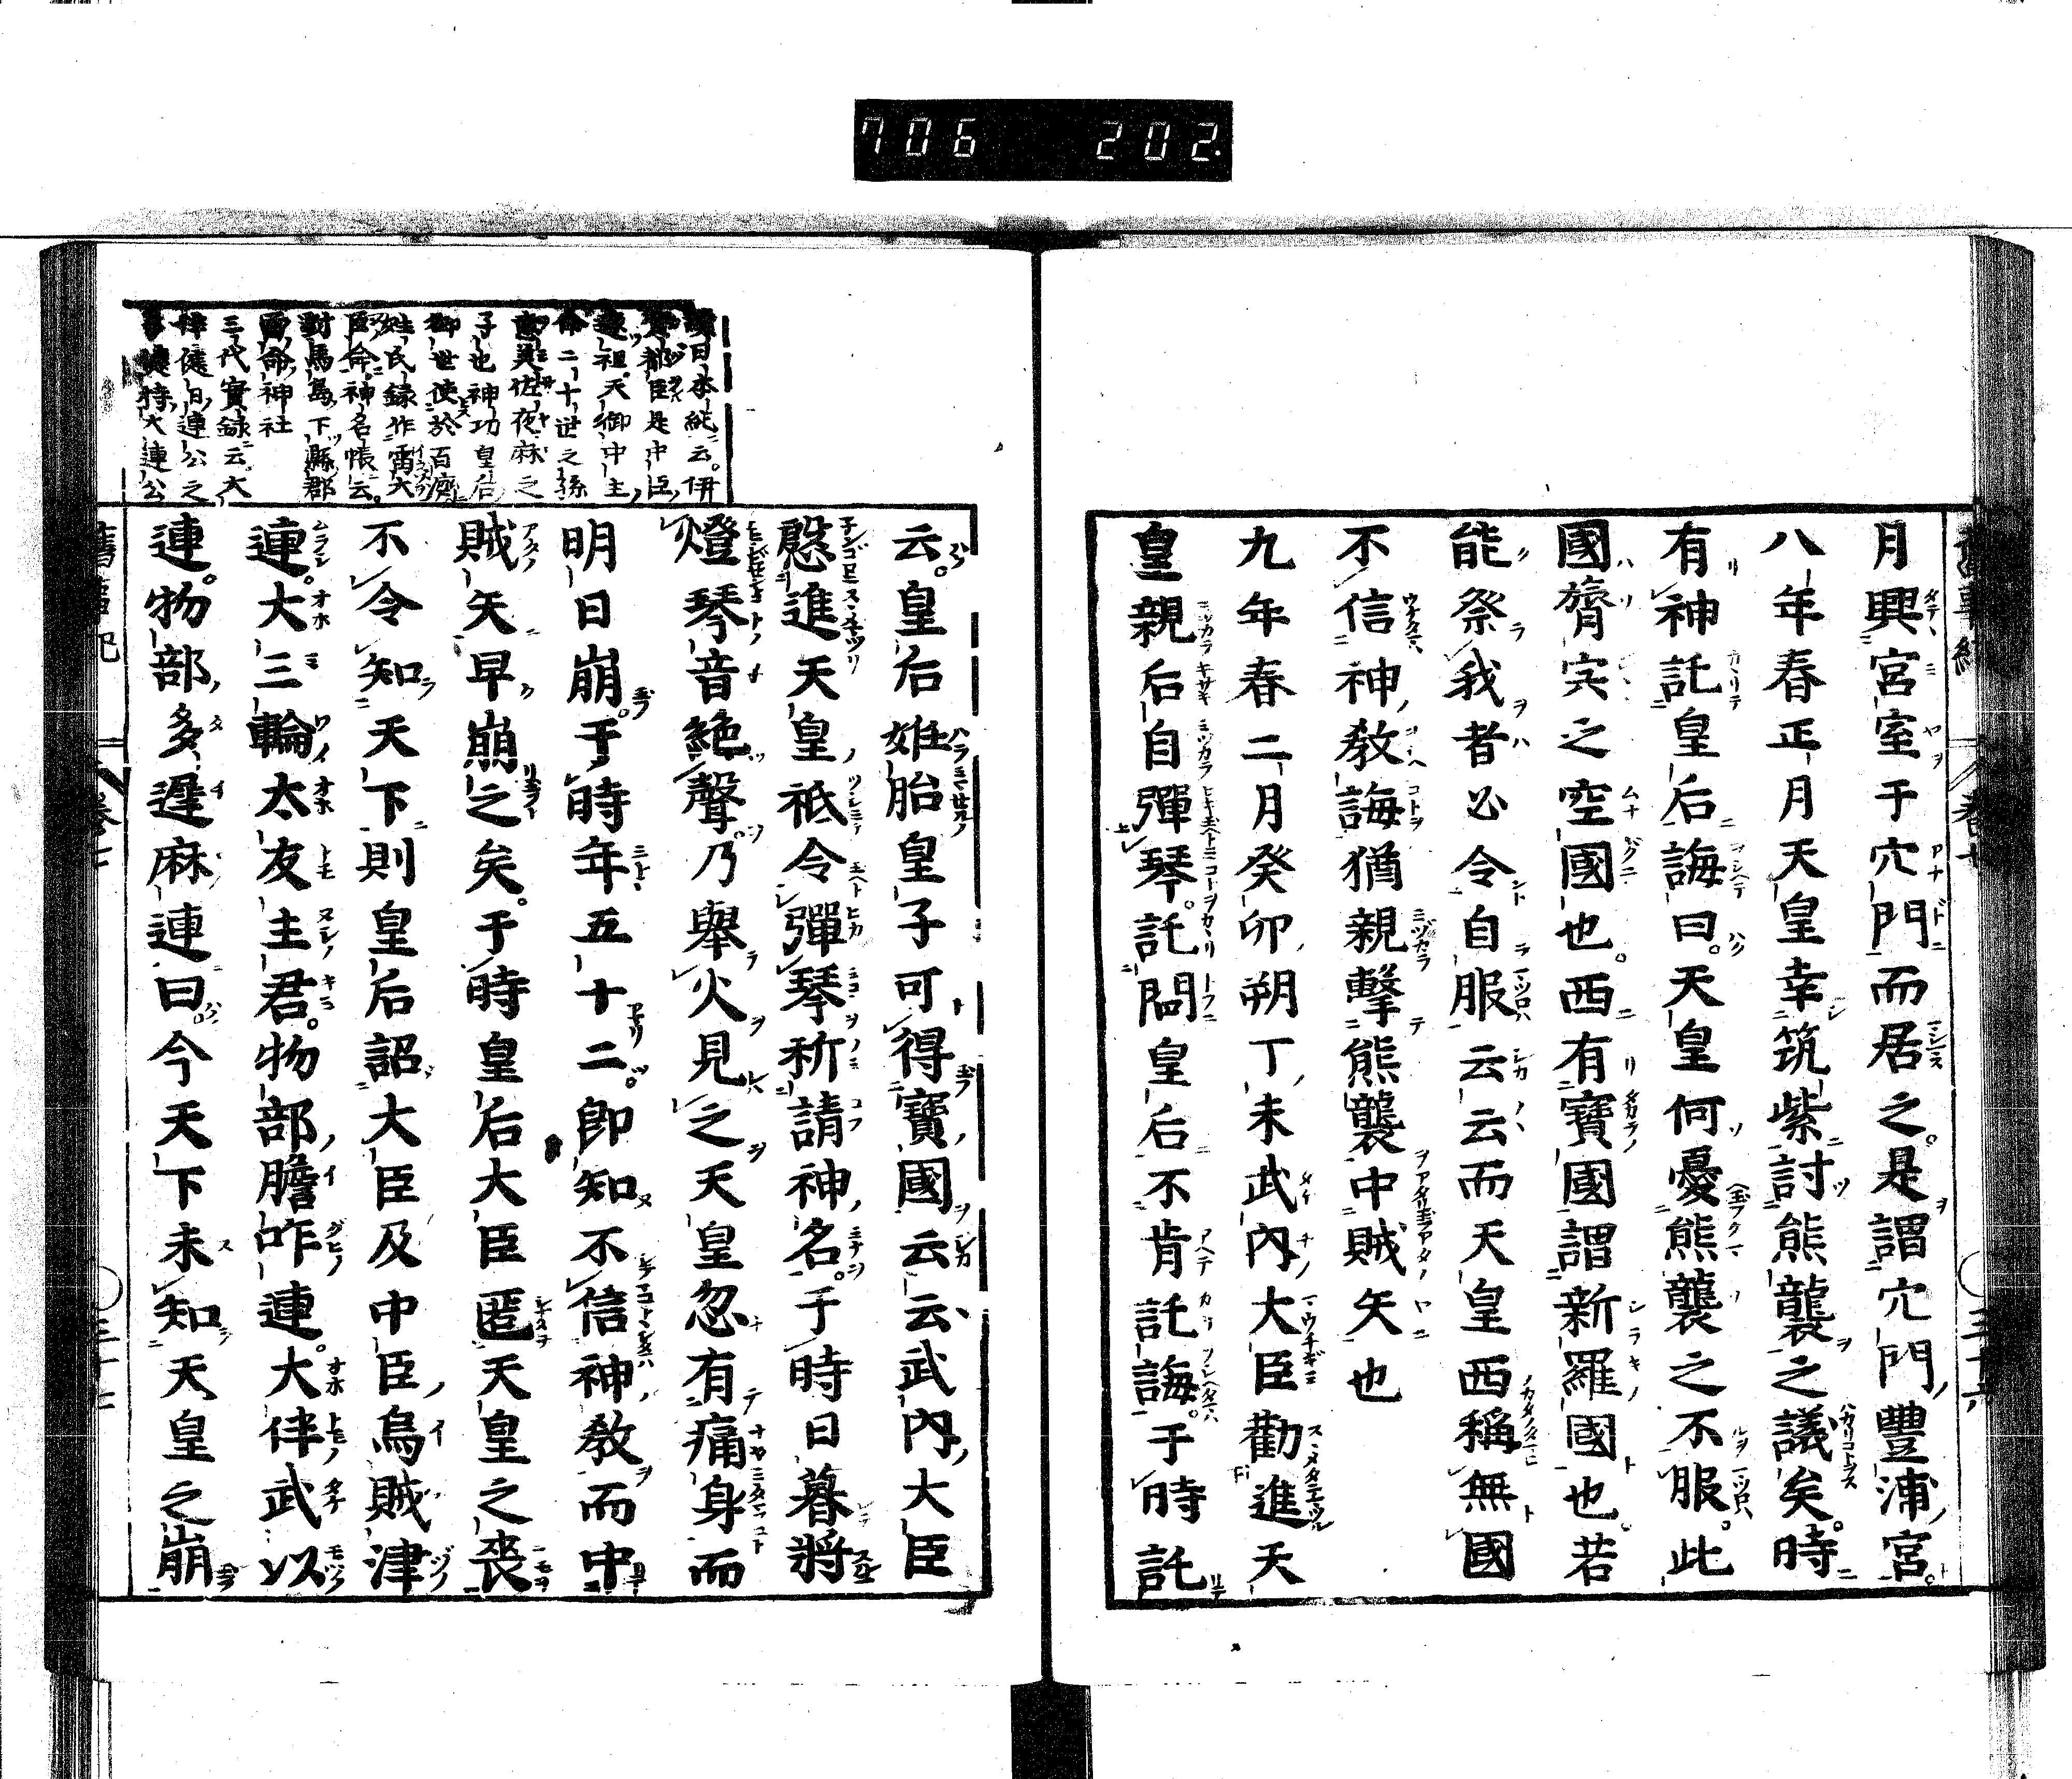 706 202
月興宮室于穴門而居之。是謂穴門豐浦宮。
八年春正月天皇幸筑紫討熊襲之議矣。時
有神託皇后誨曰。天皇何憂熊襲之不服。此
國膂宍之空國也。西有寶國謂新羅國也。若
能祭我者必令自服云云而天皇西稱無國
不信神教誨猶親擊熊襲中賊矢也
九年春二月癸卯朔丁未武內大臣勸進天
皇親后自彈琴。託問皇后不肯託誨。于時託
云。皇后姙胎皇子可得寶國云云武內大臣
慇進天皇祗令彈琴祈請神名。于時日暮將
燈琴音絶聲。乃舉火見之天皇忽有痛身而
明日崩。于時年五十二。卽知不信神教而中
賊矢早崩之矣。于時皇后大臣匿天皇之喪
不令知天下則皇后詔大臣及中臣烏賊津
連。大三輪太友主君。物部膽咋連。大伴武以
連。物部多遲麻連曰。今天下未知天皇之崩
日本紀云。伊
賀都臣是中臣
遠祖。天御中主
命二十世之孫
意美佐夜麻之
子也神功皇后
御世使於百濟
姓氏録作雷大
臣命神名帳云。
對馬島下縣郡
雷命神社
三代實録云大
伴健日連公之
健持大連公